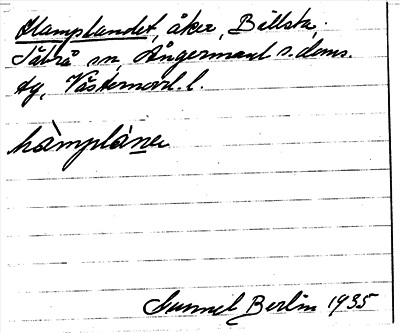 Hamplandet, åker, Billsta,
Såbrå sn, Ångermanl. s. doms.
tg, Västernorrl. l.
hàmpláne
Gunnel Berlin 1935